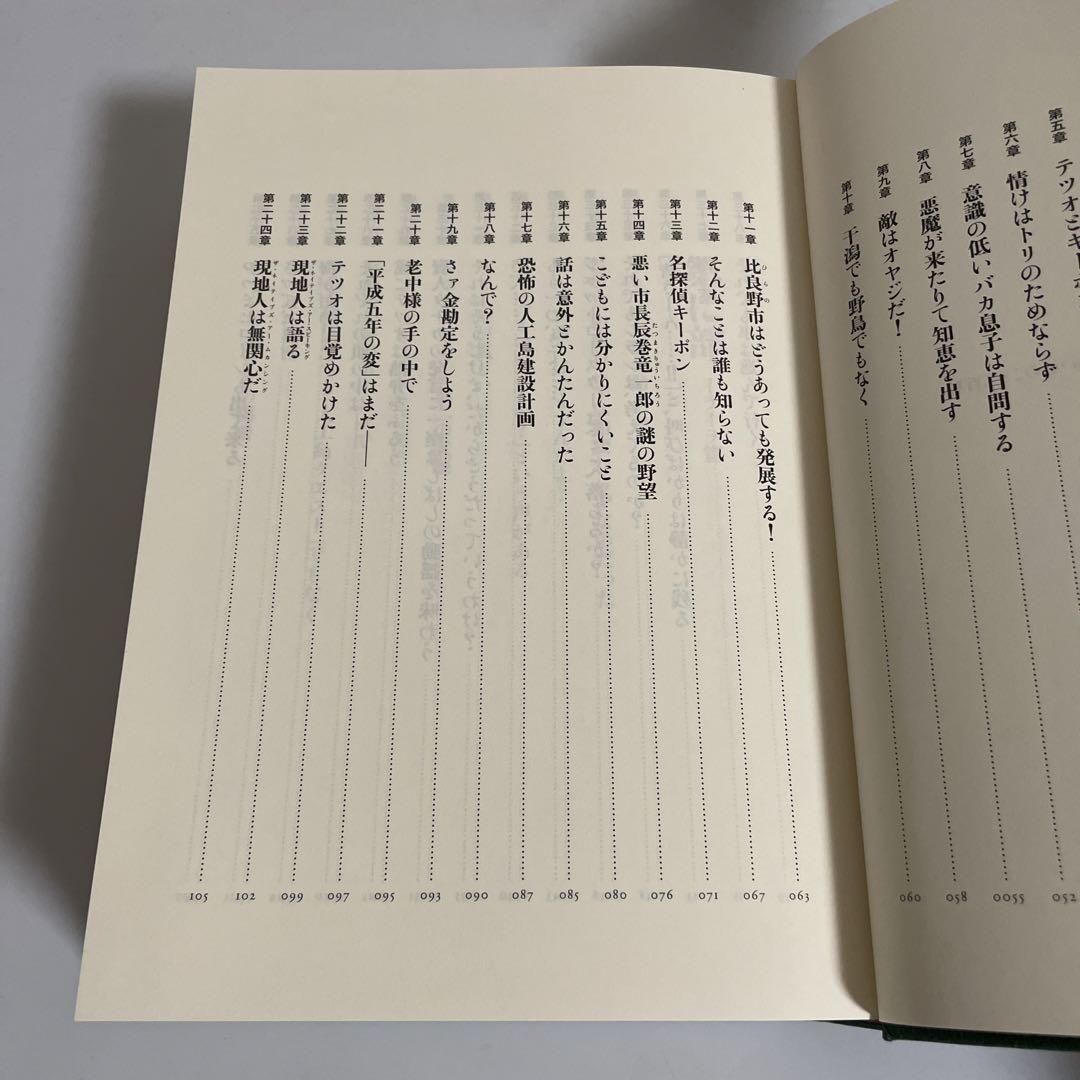 第五章 テツオとキ
第六章 情けはトリのためならず
第七章 意識の低いバカ息子は自問する 052
第八章 悪魔が来たりて知恵を出す 0055
第九章 敵はオヤジだ！ 058
第十章 干潟でも野鳥でもなく 060
ひらの
第十一章 比良野市はどうあっても発展する！ 063
第十二章 そんなことは誰も知らない 067
第十三章 名探偵キーポン 071
たつまきりゅういちろう
第十四章 悪い市長辰巻竜一郎の謎の野望 076
第十五章 こどもには分かりにくいこと 080
第十六章 話は意外とかんたんだった 085
第十七章 恐怖の人工島建設計画 087
第十八章 なんで？ 090
第十九章 さァ金勘定をしよう 093
第二十章 老中様の手の中で 095
第二十一章 「平成五年の変」はまだ―― 097
第二十二章 テツオは目覚めかけた 099
ザ・ネイティブズ・アー・スピーキング
第二十三章 現地人は語る 102
ザ・ネイティブズ・アー・ムカンシング
第二十四章 現地人は無関心だ 105